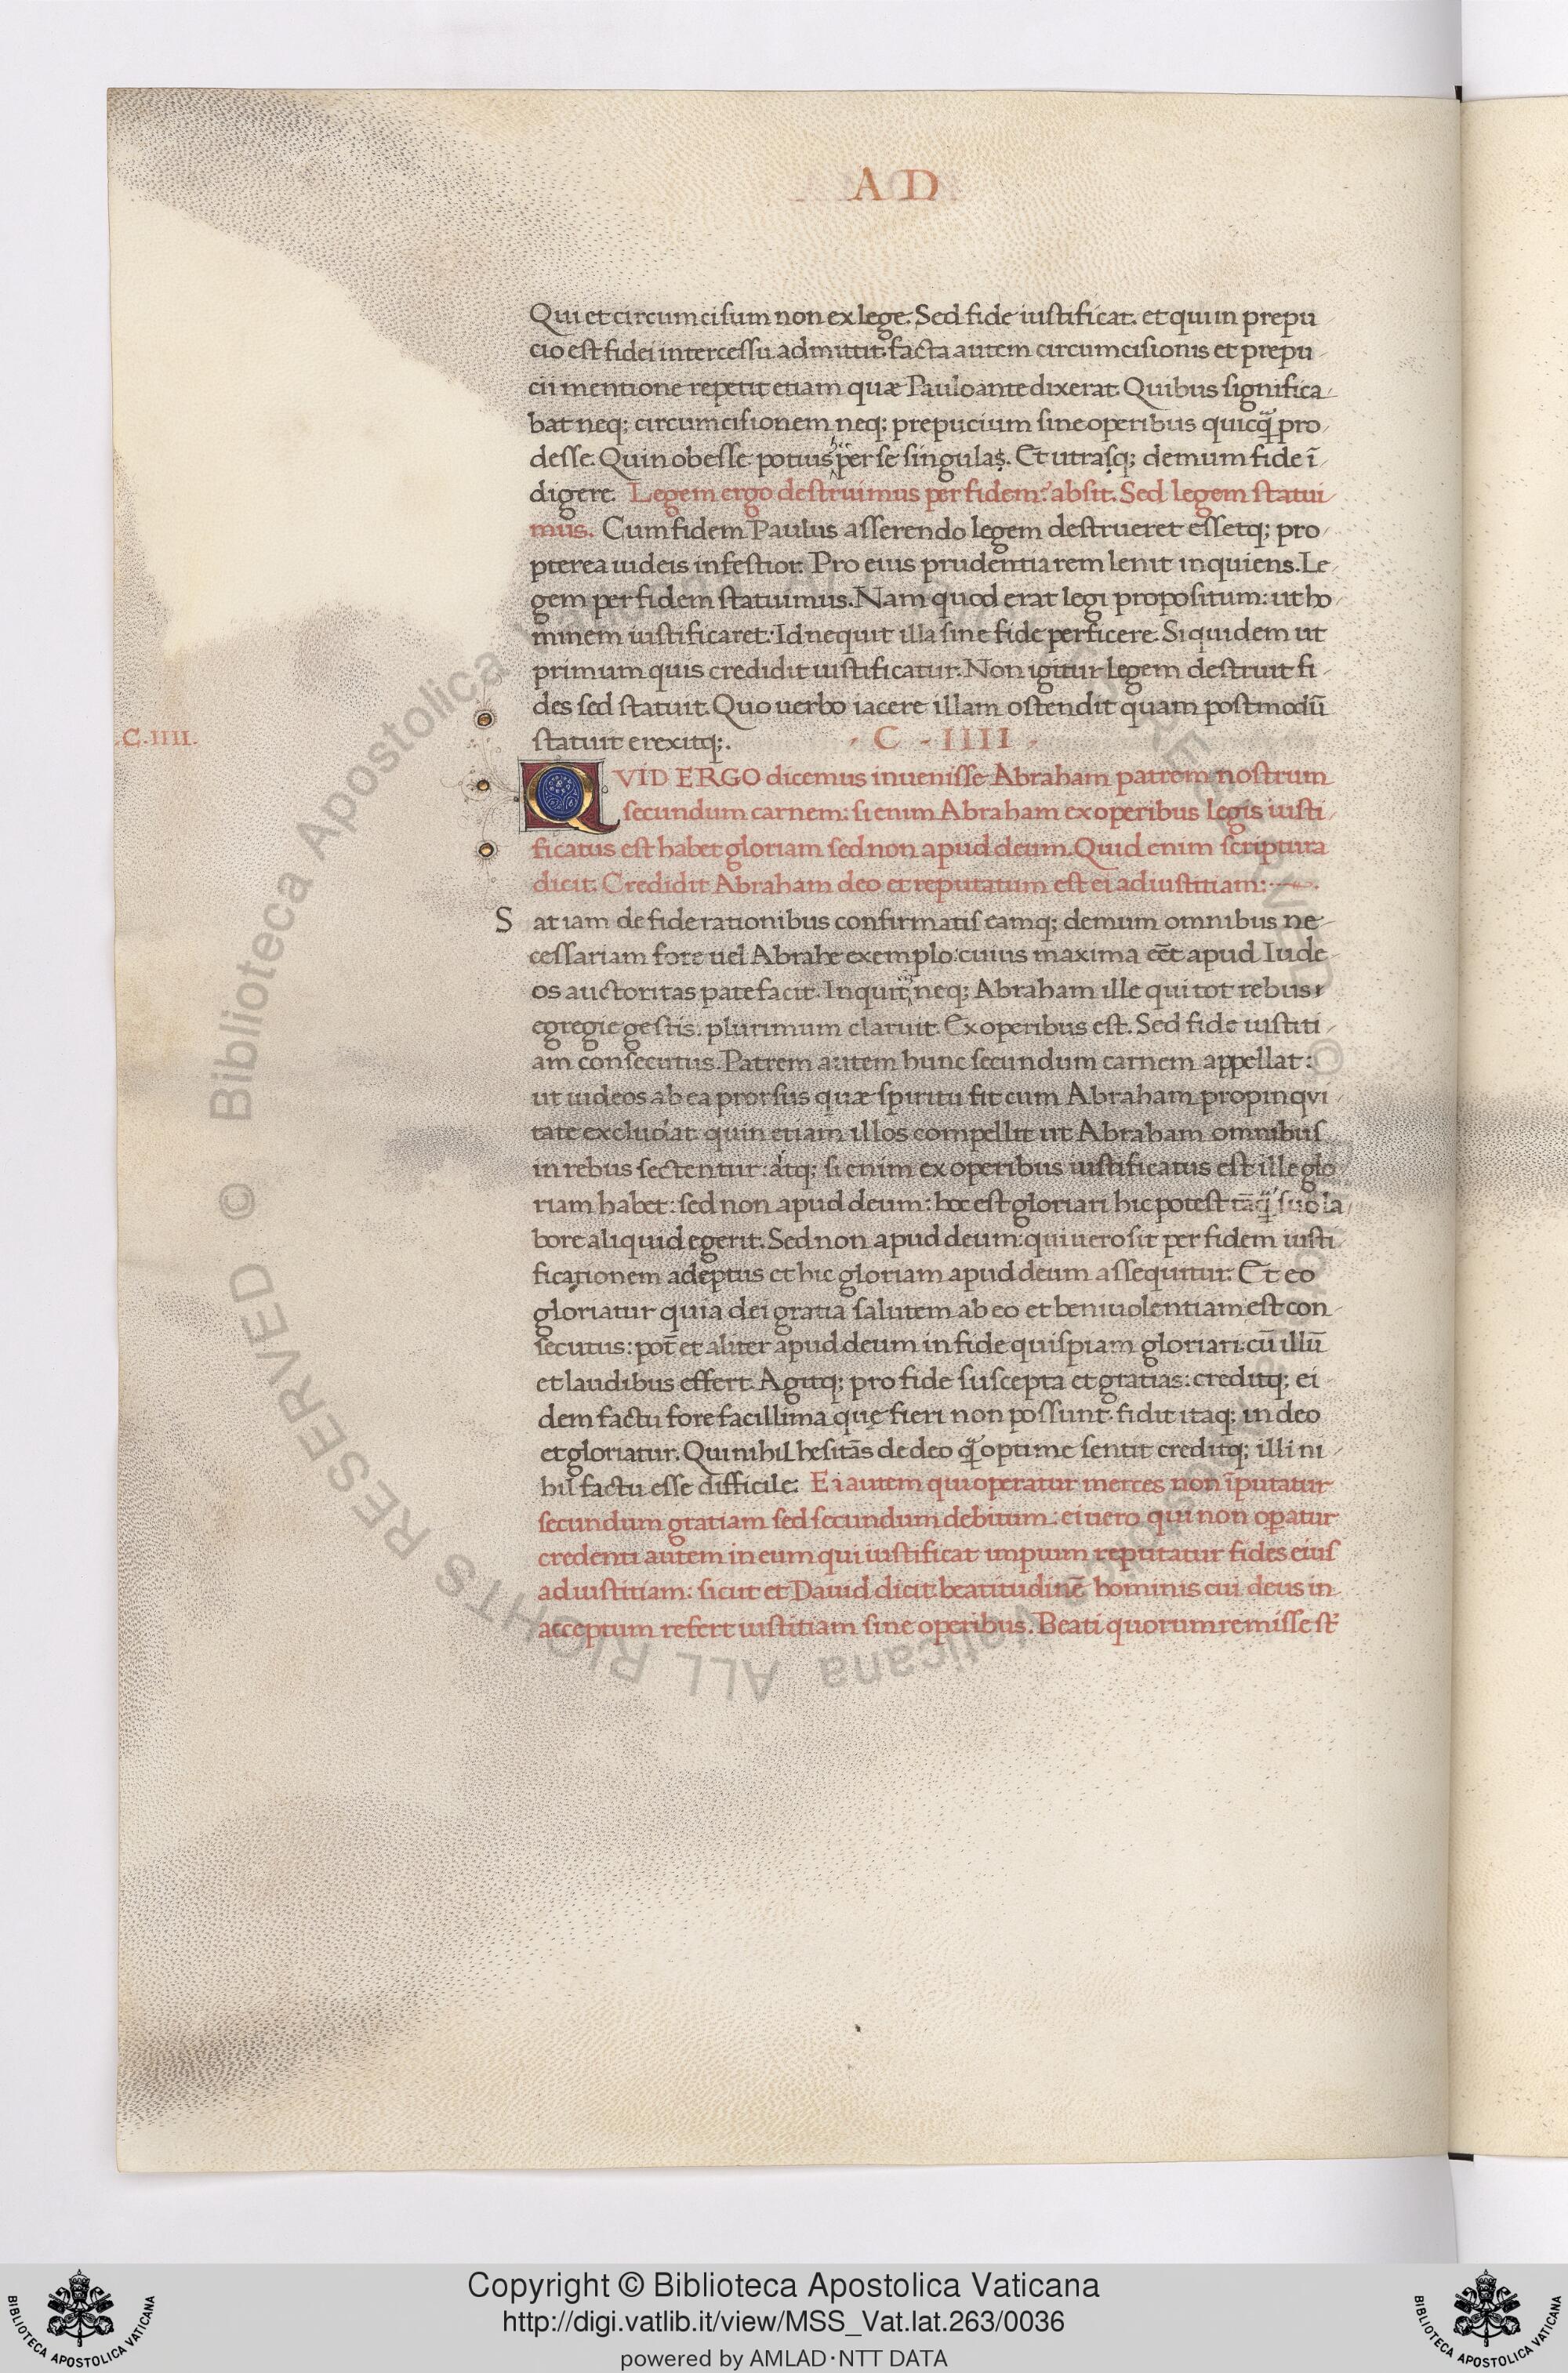 A D
Qui et circumcisum non ex lege. Sed fide iustificat. et qui in prepu
cio est fidei intercessu admittit. facta autem circumcisionis et prepu
cii mentione repetit etiam quæ Paulo ante dixerat. Quibus significa
bat neq; circumcisionem neq; prepucium sine operibus quicq̃ pro
desse. Quin obesse potius per se singulas. Et utrasq; demum fide ĩ
digere. Legem ergo destruimus per fidem? absit. Sed legem statui
mus. Cum fidem Paulus asserendo legem destrueret essetq; pro
pterea iudeis infestior. Pro eius prudentia rem lenit inquiens. Le
gem per fidem statuimus. Nam quod erat legi propositum: ut ho
minem iustificaret: Id nequit illa sine fide perficere. Siquidem ut
primum quis credidit iustificatur. Non igitur legem destruit fi
des sed statuit. Quo uerbo iacere illam ostendit quam postmodũ
statuit erexitq;.
. C . IIII .
.C.IIII.
QVID ERGO dicemus inuenisse Abraham patrem nostrum
secundum carnem: si enim Abraham ex operibus legis iusti
ficatus est habet gloriam sed non apud deum. Quid enim scriptura
dicit. Credidit Abraham deo et reputatum est ei ad iustitiam:
Sat iam de fide rationibus confirmatis eamq; demum omnibus ne
cessariam fore uel Abrahe exemplo: cuius maxima eēt apud Iude
os auctoritas patefacit. Inquit neq; Abraham ille qui tot rebus
egregie gestis: plurimum claruit. Ex operibus est. Sed fide iustiti
am consecutus. Patrem autem hunc secundum carnem appellat:
ut iudeos ab ea prorsus quæ spiritu fit cum Abraham propinqui
tate excludat. quin etiam illos compellit ut Abraham omnibus
in rebus sectentur: atq; si enim ex operibus iustificatus est ille glo
riam habet: sed non apud deum: hoc est gloriari hic potest tãq̃ suo la
bore aliquid egerit. Sed non apud deum: qui uero sit per fidem iusti
ficationem adeptus et hic gloriam apud deum assequitur. Et eo
gloriatur quia dei gratia salutem ab eo et beniuolentiam est con
secutus: pot̃ et aliter apud deum in fide quispiam gloriari. cũ illũ
et laudibus effert. Agitq; pro fide suscepta et gratias: creditq; ei
dem factu fore facillima quę fieri non possunt. fidit itaq; in deo
et gloriatur. Qui nihil hesitãs de deo q̃ optime sentit creditq; illi ni
hil factu esse difficile. Ei autem qui operatur merces non ĩputatur
secundum gratiam sed secundum debitum: ei uero qui non opatur
credenti autem in eum qui iustificat impium reputatur fides eius
ad iustitiam: sicut et Dauid dicit beatitudinẽ hominis cui deus in
acceptum refert iustitiam sine operibus. Beati quorum remisse st̃
© Biblioteca Apostolica Vaticana ALL RIGHTS RESERVED
BIBLIOTECA APOSTOLICA VATICANA
Copyright © Biblioteca Apostolica Vaticana
http://digi.vatlib.it/view/MSS_Vat.lat.263/0036
powered by AMLAD·NTT DATA
BIBLIOTECA APOSTOLICA VATICANA